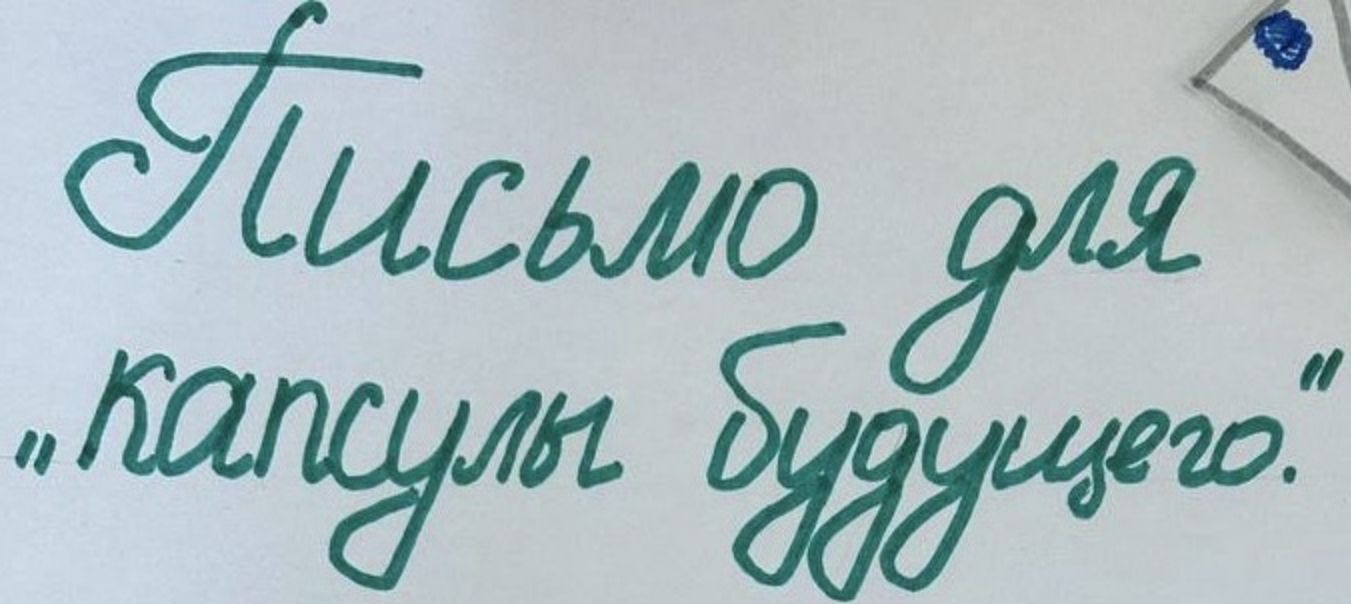 Письмо для
„капсулы будущего."